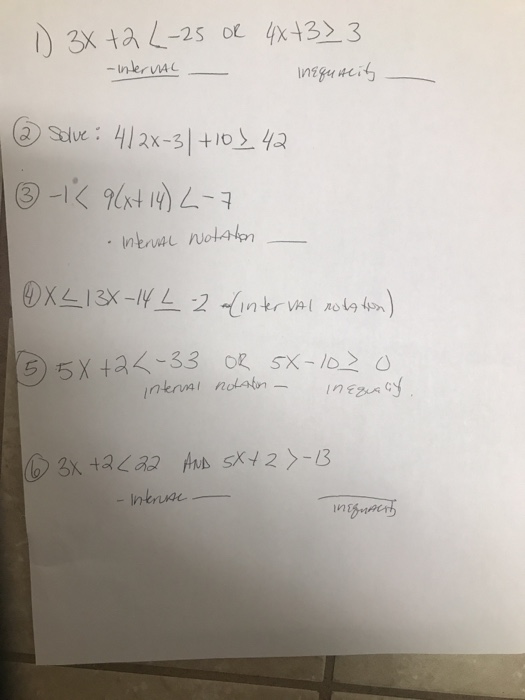 1) 3x+2<-25 OR 4x+3≥3
-interval ___ inequality ___
② Solve: 4|2x-3|+10≥42
③ -1< 9(x+14)<-7
· interval notation ___
④ x≤13x-14≤-2 -(interval notation)
⑤ 5x+2<-33 OR 5x-10≥0
interval notation - inequality.
⑥ 3x+2<22 AND 5x+2>-13
- Interval ___ inequality